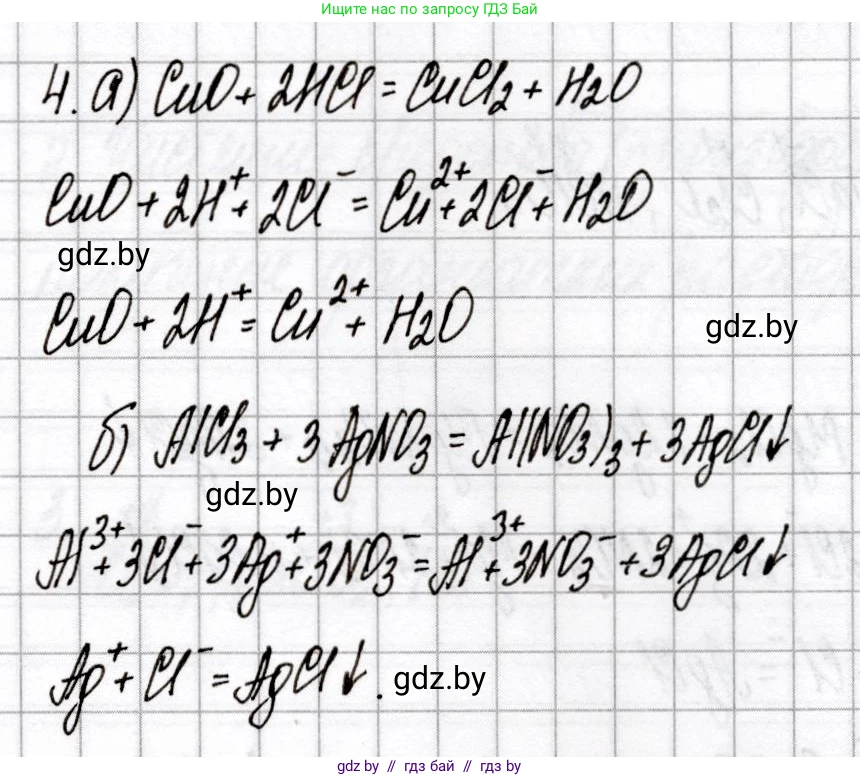 Ищите нас по запросу ГДЗ Бай
4. а) CuO + 2HCl = CuCl₂ + H₂O
CuO + 2H⁺ + 2Cl⁻ = Cu²⁺ + 2Cl⁻ + H₂O
gdz.by
CuO + 2H⁺ = Cu²⁺ + H₂O
gdz.by
б) AlCl₃ + 3AgNO₃ = Al(NO₃)₃ + 3AgCl↓
gdz.by
Al³⁺ + 3Cl⁻ + 3Ag⁺ + 3NO₃⁻ = Al³⁺ + 3NO₃⁻ + 3AgCl↓
Ag⁺ + Cl⁻ = AgCl↓.
gdz.by
gdz.by // гдз бай // gdz.by